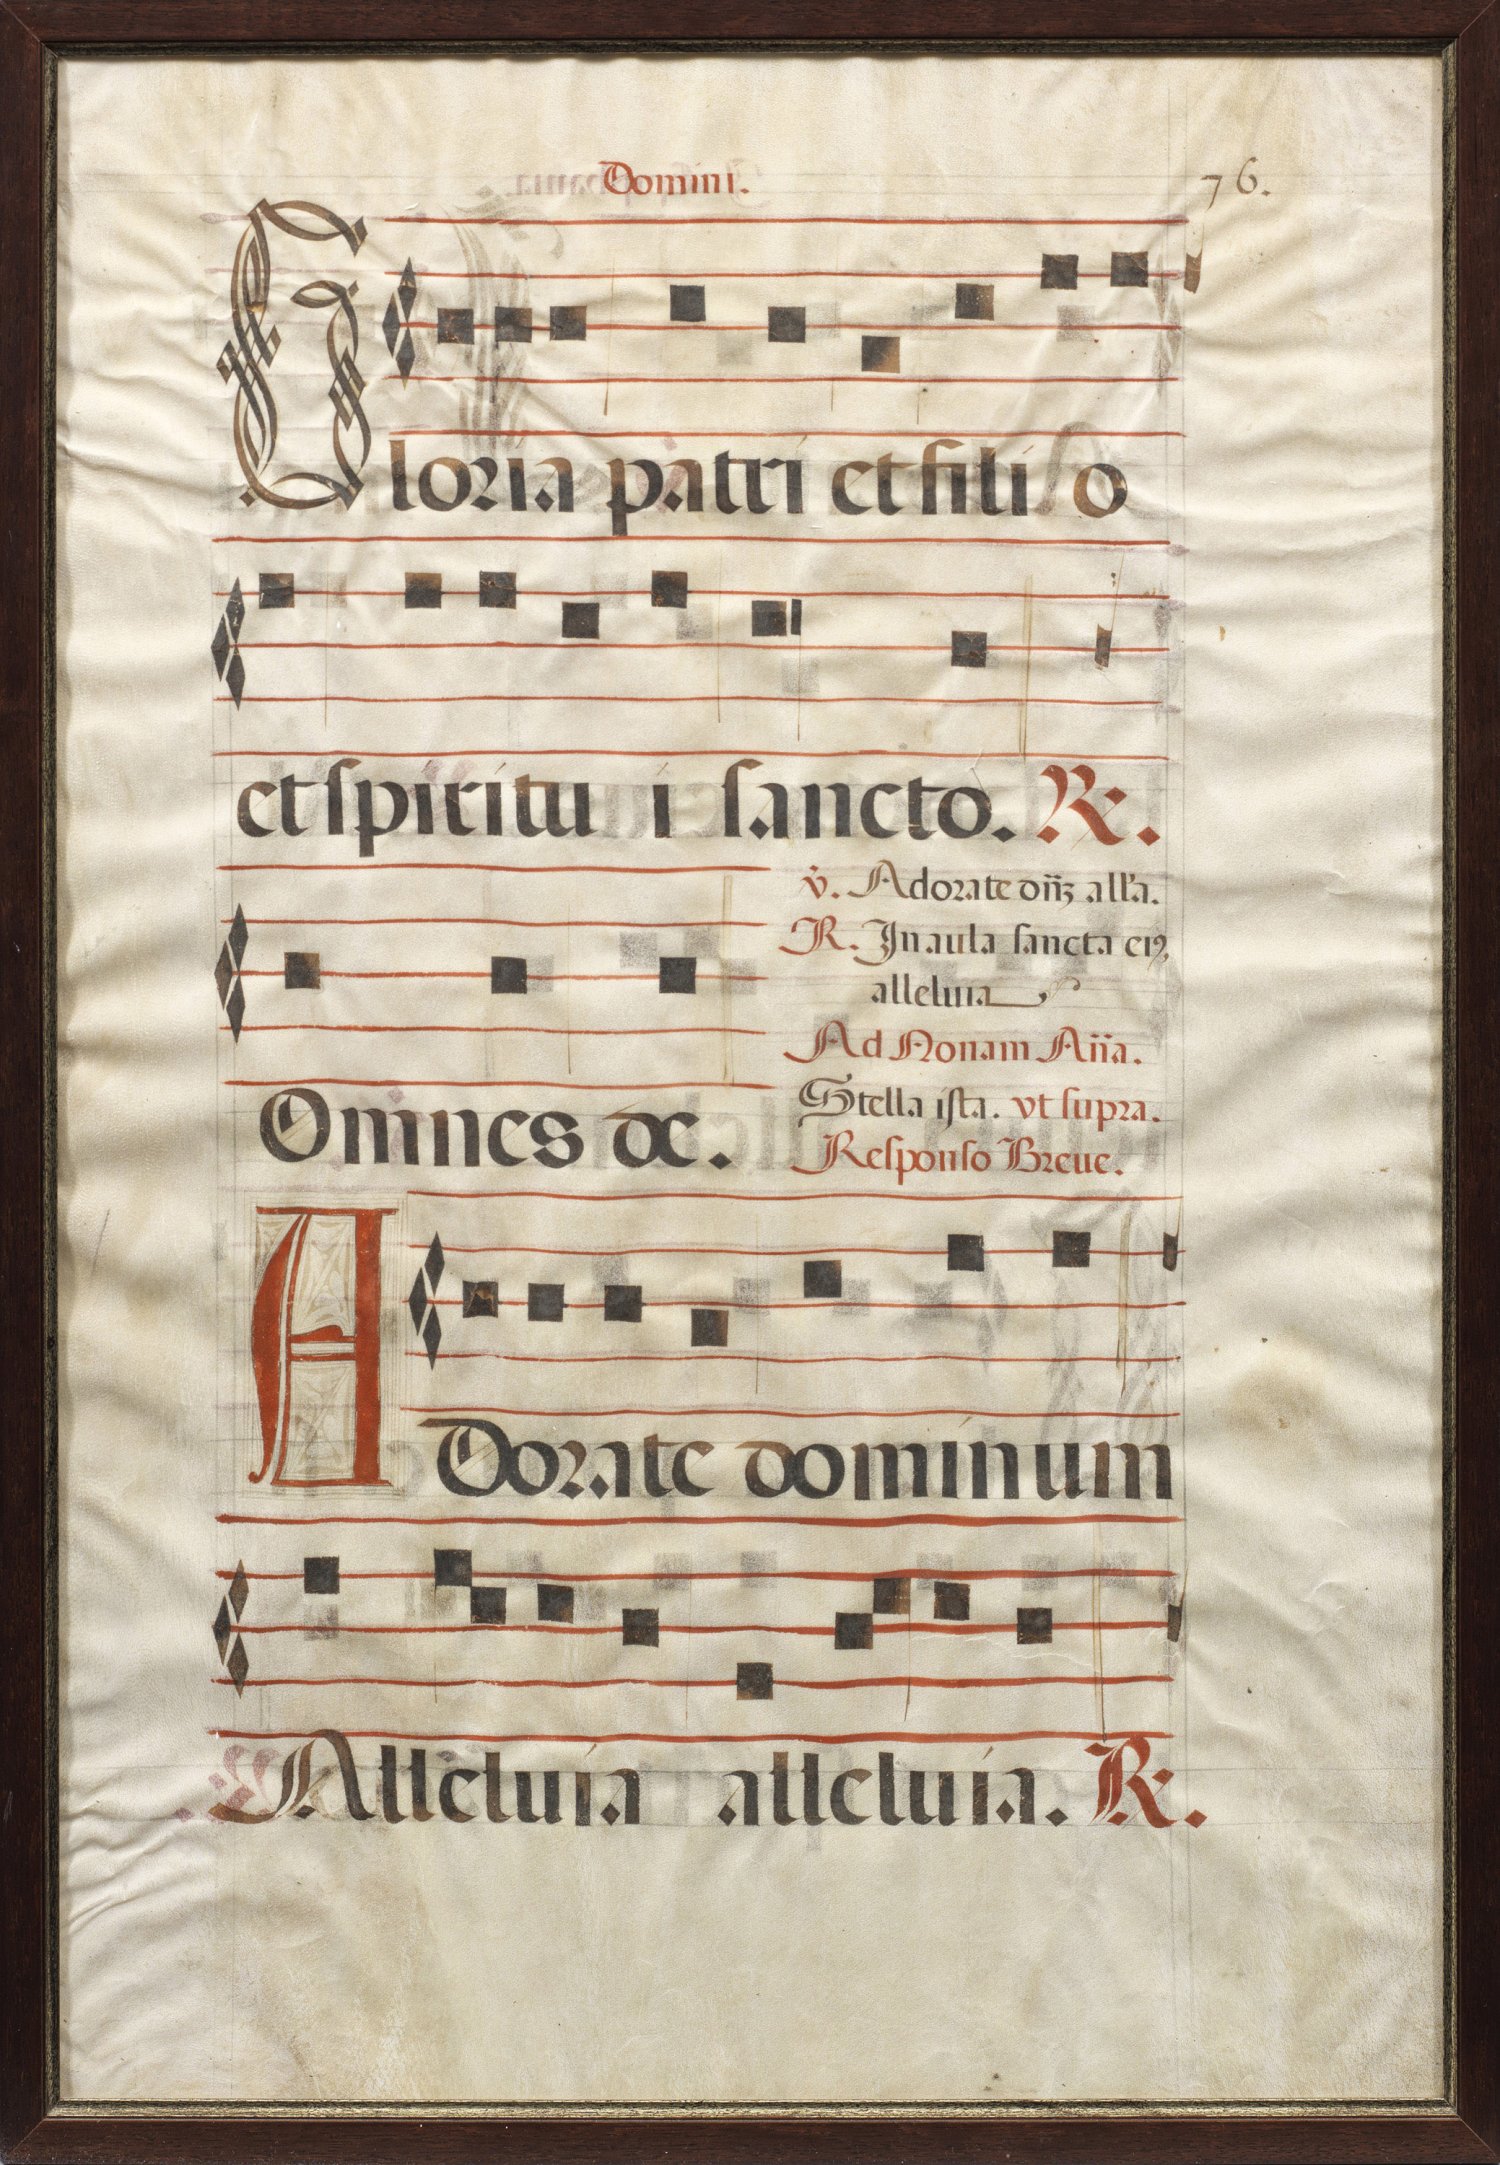 Domini.
76.
Gloria patri et filio
et spiritu i sancto. R.
v. Adorate dñȝ all'a.
R. In aula sancta eiꝰ
alleluia
Ad Nonam Añа.
Omnes de.
Stella ista. vt supra.
Responso Breue.
ADorate dominum
Alleluia alleluia. R.